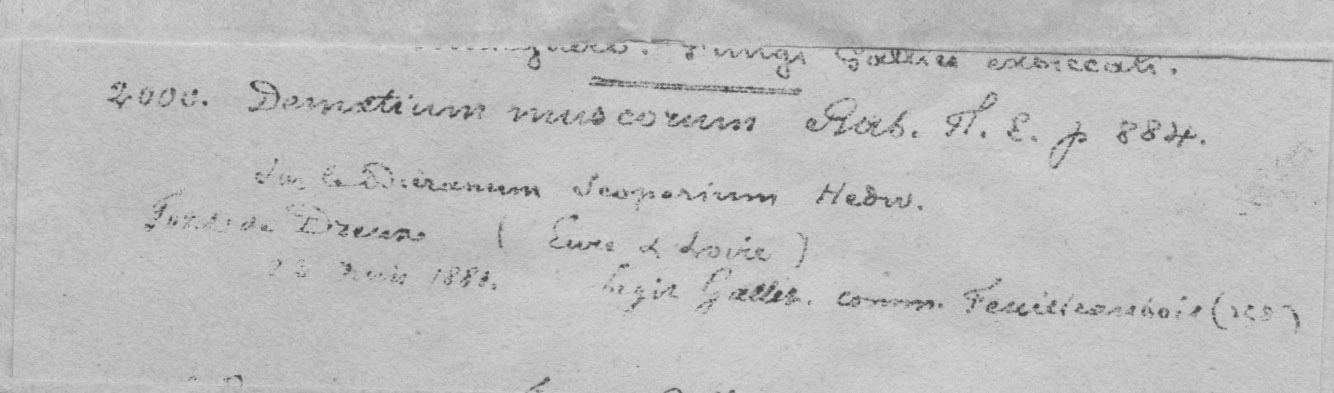 Fungi Gallici exsiccati.
2000. Dematium muscorum Rab. Fl. E. p 884.
Sur le Dicranum Scoparium Hedw.
Dreux (Eure & Loire)
188 legit Gallet. comm. Feuilleaubois